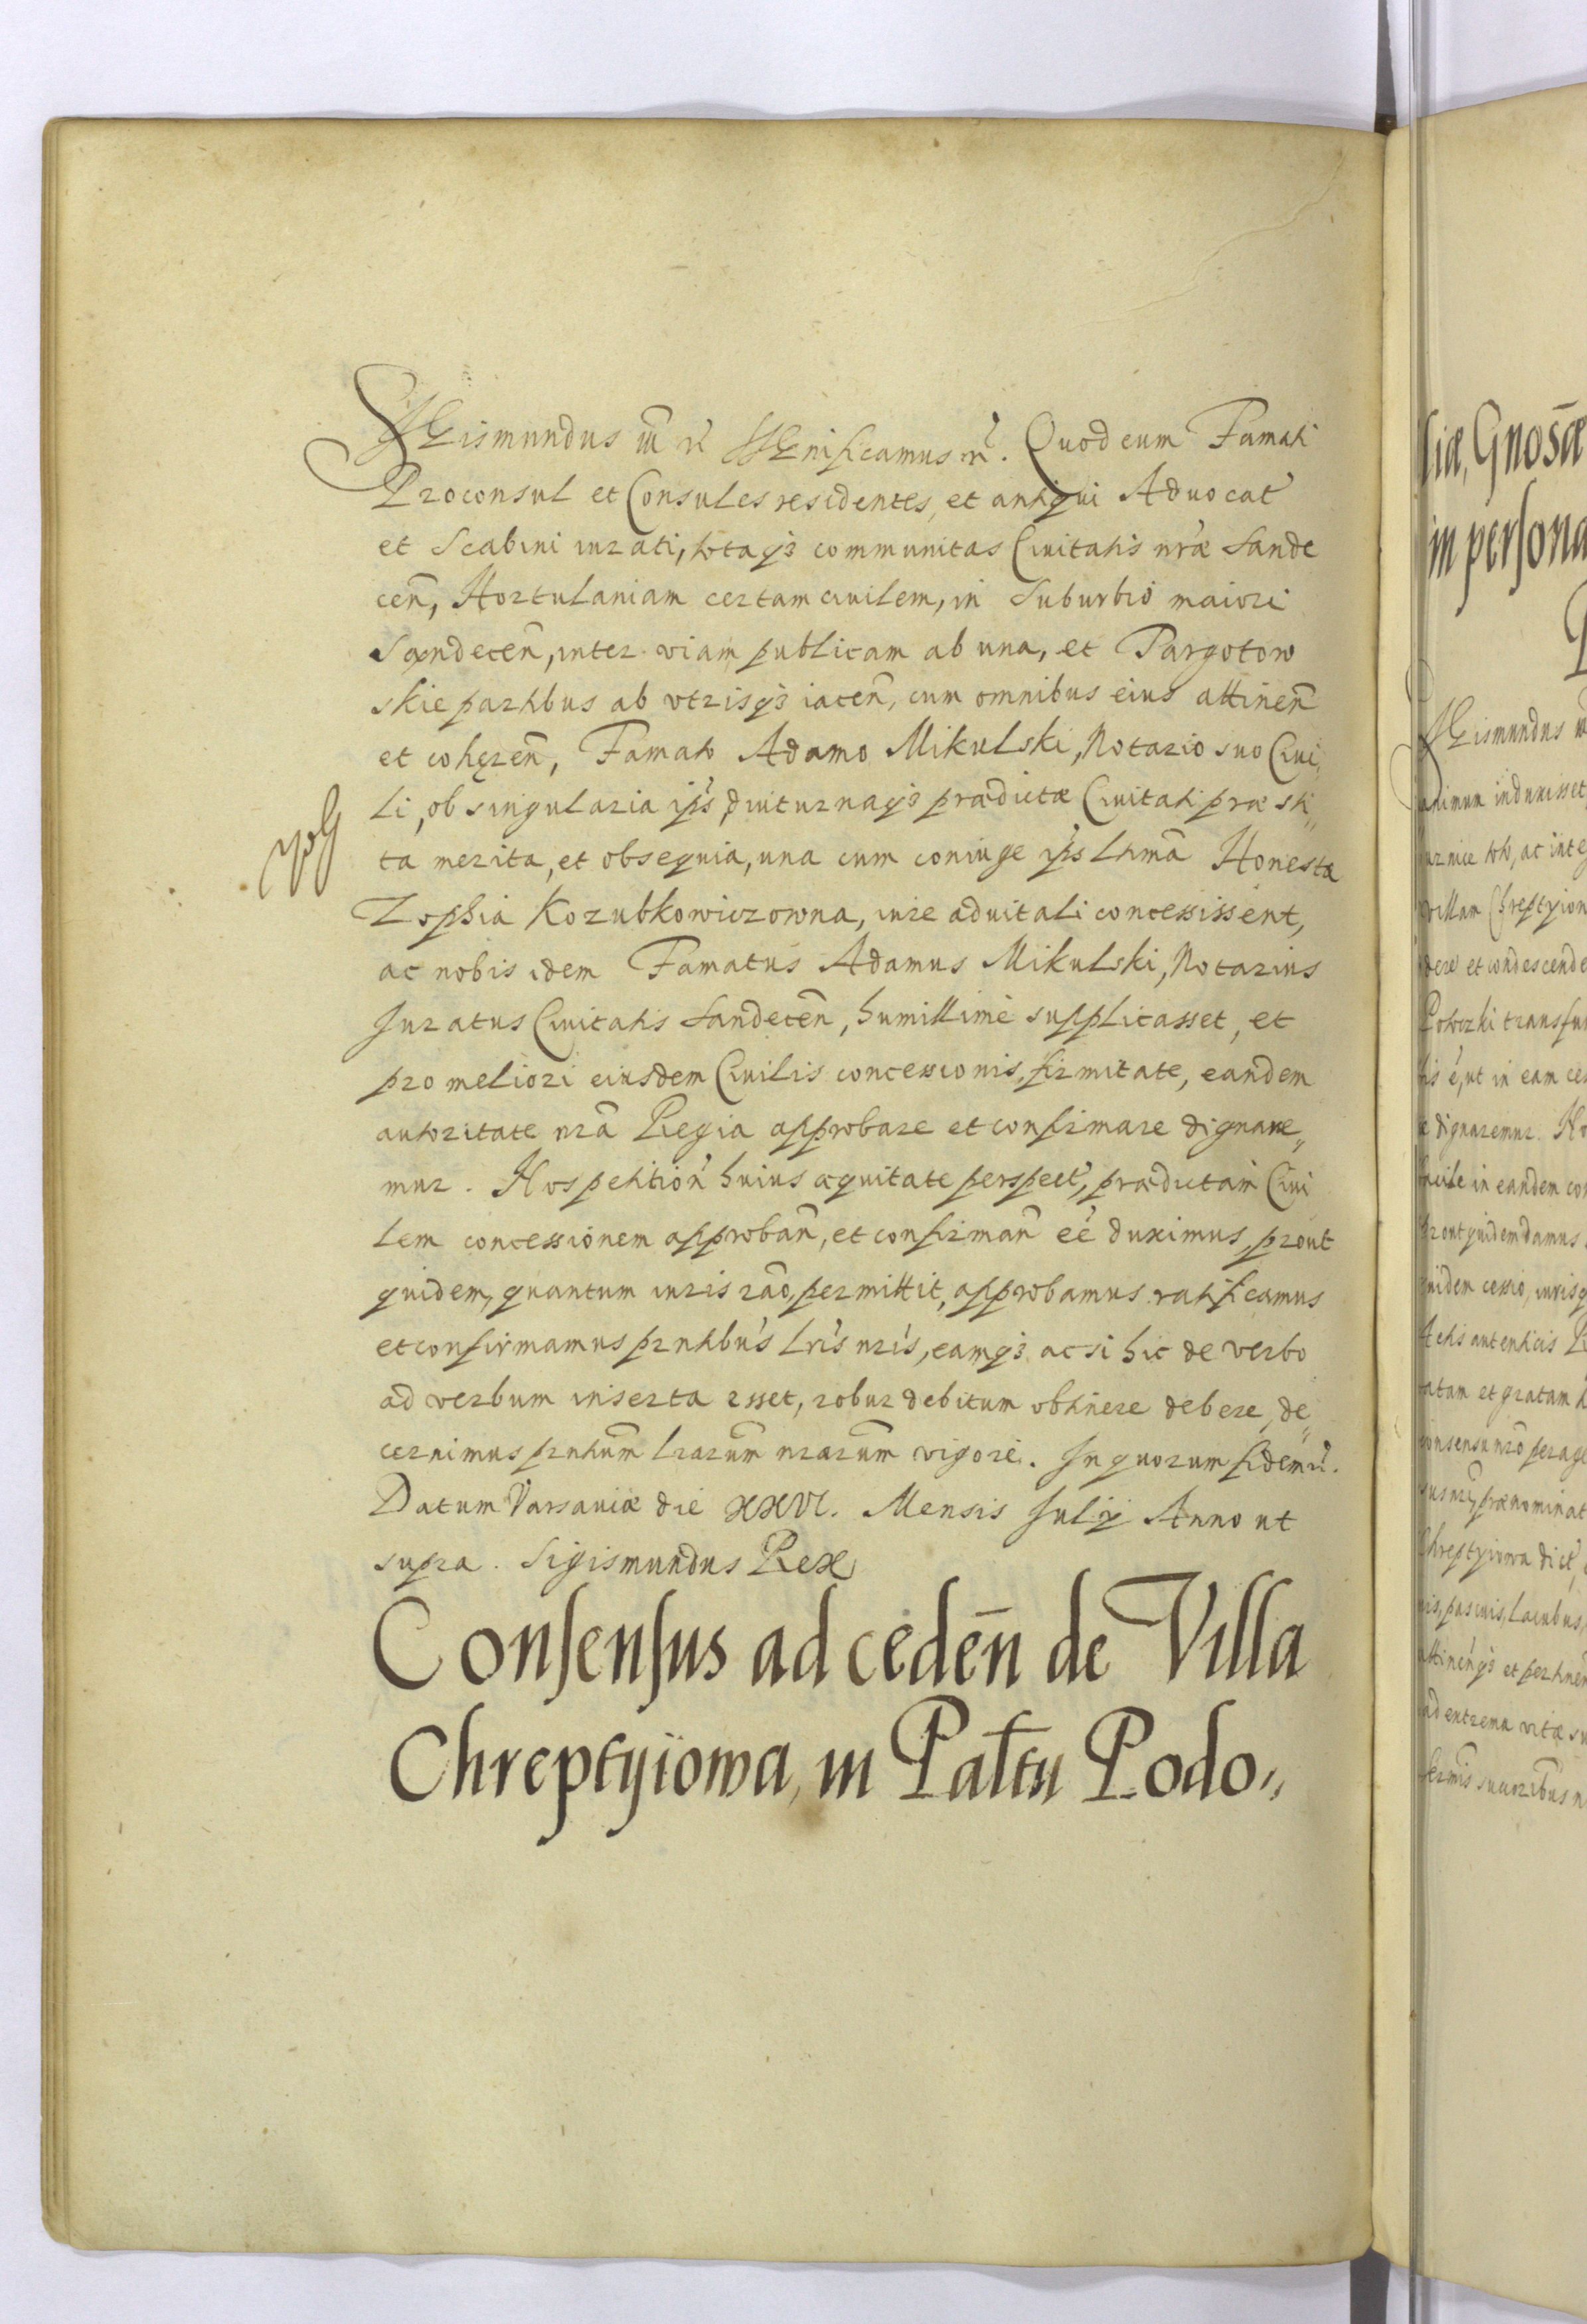 SIGismundus III rć SIGnificamus rć. Quod cum Famati
Proconsul et Consules residentes, et antiqui Aduocat
et Scabini iurati, totaq3 communitas Ciuitatis nræ Sande
ceñ, Hortulaniam certam ciuilem, in Suburbio maiori
Sandeceñ, inter viam publicam ab una, et Pargotow
skie partibus ab vtrisq3 iaceñ, cum omnibus eius attineñ
et cohęreñ, Famato Adamo Mikulski, Notario suo Ciui„
li, ob singularia ip̃s, diuturnaq3 prædictæ Ciuitati præsti„
ta merita, et obsequia, una cum coniuge ip̃s Ltĩma Honesta
Zophia Kozubkowiczowna, iure aduitali concessissent,
ac nobis idem Famatus Adamus Mikulski, Notarius
Juratus Ciuitatis Sandeceñ, humillimè supplicasset, et
pro meliori eiusdem Ciuilis concessionis, firmitate, eandem
autoritate nrã Regia approbare et confirmare dignare„
mur. Nos petitioñ huius æquitate perspect, prædictam Ciui
lem concessionem approbañ, et confirmañ eé duximus, prout
quidem, quantum iuris raõ, permittit, approbamus ratificamus
et confirmamus prntibus lris nris, eamq3 ac si hic de verbo
ad verbum inserta esset, robur debitum obtinere debere, de„
cernimus prntium lrarum nrarum vigore. In quorum fidem rć.
Datum Varsauiæ die XXVI. Mensis Julij Anno ut
supra. Sigismundus Rex
Consensus ad cedeñ de Villa
Chreptyiowa, in Paltu Podo„
liæ, Gnosæ
in persona
SIGismundus
animum induxisset
villam Chreptyiow
dere et condescende
Potoczki transfun
dignaremur.
facile in eandem con
prout quidem damus
quidem cessio, iurisq
Actis autenticis
ratam et gratam
consensu nrõ perage
prænominat
Chreptyiowa dict,
pascuis, lacubus,
attineñq3 et pertineñ
ad extrema vitæ su